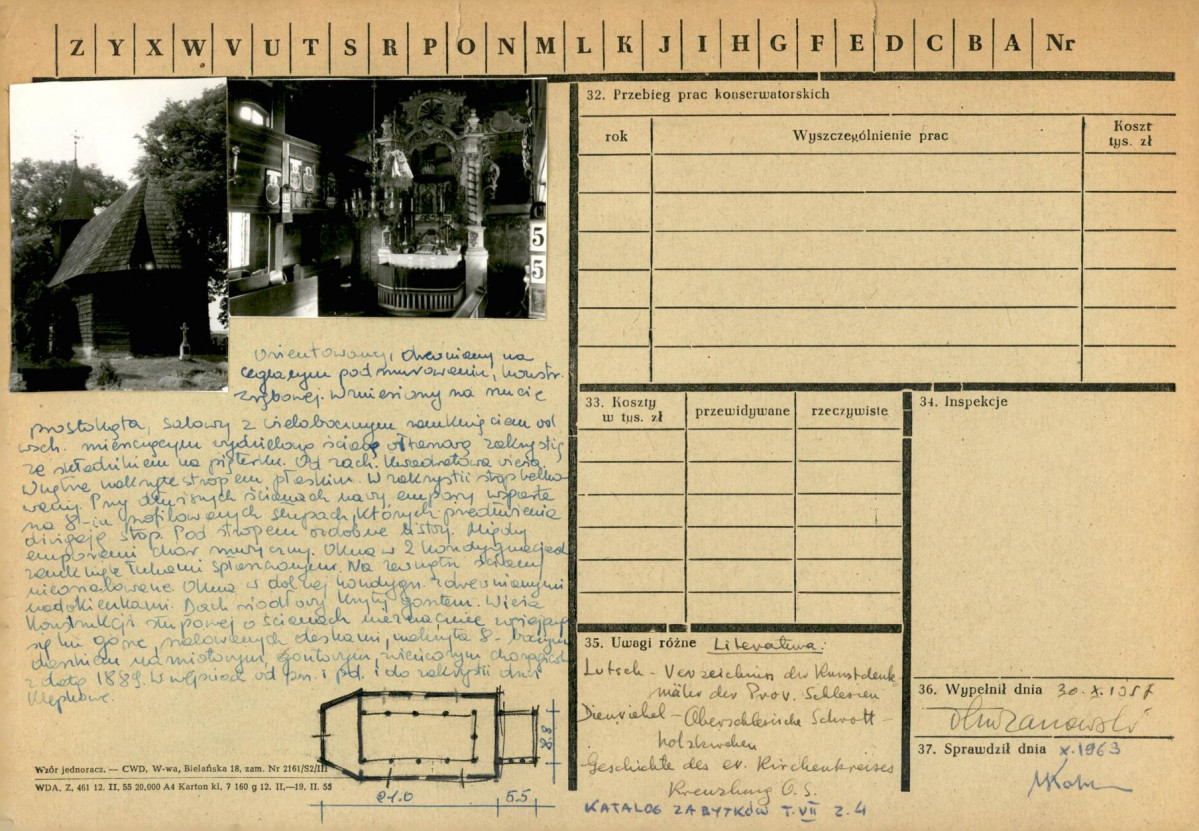 Z Y X W V U T S R P O N M L K J I H G F E D C B A Nr
5
5
Orientowany, drewniany na
ceglanym podmurowaniu, konstr.
zrębowej. Wzniesiony na rzucie
prostokąta, salowy z wielobocznym zamknięciem od
wsch. mieszczącym wydzieloną ścianą ołtarzową zakrystię
ze składzikiem na piętrze. Od zach. kwadratowa wieża.
Wnętrze nakryte stropem płaskim. W zakrystii strop belko-
wany. Przy dłuższych ścianach nawy empory wsparte
na 8-iu profilowanych słupach, których przedłużenia
dźwigają strop. Pod stropem ozdobne listwy. Między
emporami chór muzyczny. Okna w 2 kondygnacjach
zamknięte łukami spłaszczonymi. Na zewnątrz ściany
nieoszalowane. Okna w dolnej kondygn. z drewnianymi
nadokienkami. Dach siodłowy kryty gontem. Wieża
konstrukcji słupowej o ścianach nieznacznie zwężających
się ku górze, szalowanych deskami, nakryta 8-bocznym
daszkiem namiotowym, gontowym, zwieńczonym chorągiewką
z datą 1889. W wejściach od pn. i pd. i do zakrystii drzwi
klepkowe
21.0
5.5
8.8
Wzór jednoracz. — CWD, W-wa, Bielańska 18, zam. Nr 2161/S2/III
WDA. Z. 461 12. II. 55 20.000 A4 Karton kl. 7 160 g 12. II.—19. II. 55
32. Przebieg prac konserwatorskich
rok Wyszczególnienie prac Koszt
tys. zł
33. Koszty
w tys. zł przewidywane rzeczywiste
34. Inspekcje
35. Uwagi różne Literatura:
Lutsch - Verzeichnis der Kunstdenk
mäler der Prov. Schlesien
Dienwiebel - Oberschlesische Schrott-
holzkirchen
Geschichte des ev. Kirchenkreises
Kreuzburg O.S.
KATALOG ZABYTKÓW T. VII z. 4
36. Wypełnił dnia 30.X.1957
37. Sprawdził dnia X.1963